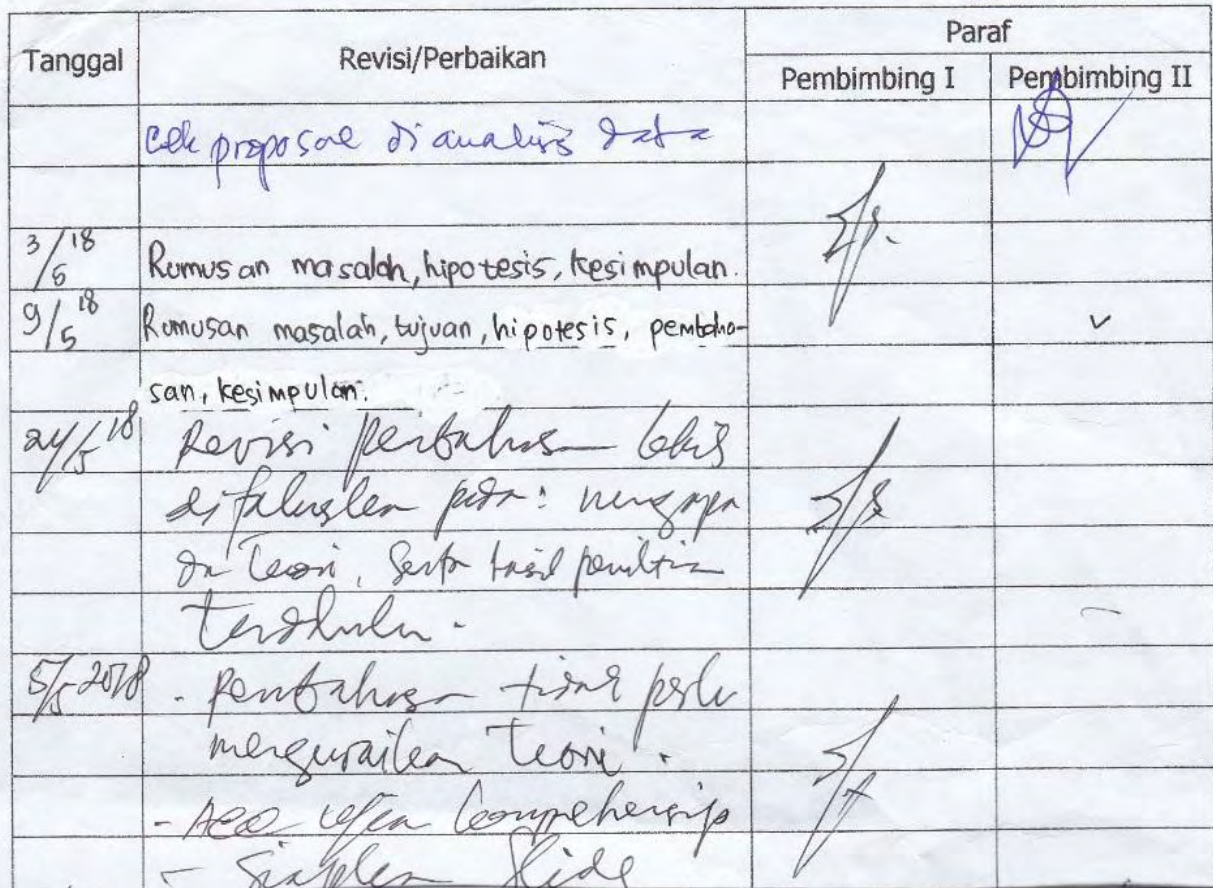 Tanggal Revisi/Perbaikan Paraf
Pembimbing I Pembimbing II
Cek proposal di analisis data
3/5 18 Rumusan masalah, hipotesis, kesimpulan.
9/5 18 Rumusan masalah, tujuan, hipotesis, pembaha-
san, kesimpulan.
24/5 18 Revisi pembahasan lebih
difokuskan pada: mengapa
dn teori, serta hasil penelitian
terdahulu.
5/5 2018 - pembahasan tidak perlu
menguraikan teori.
- Acc ujian komprehensip
- Siapkan Slide